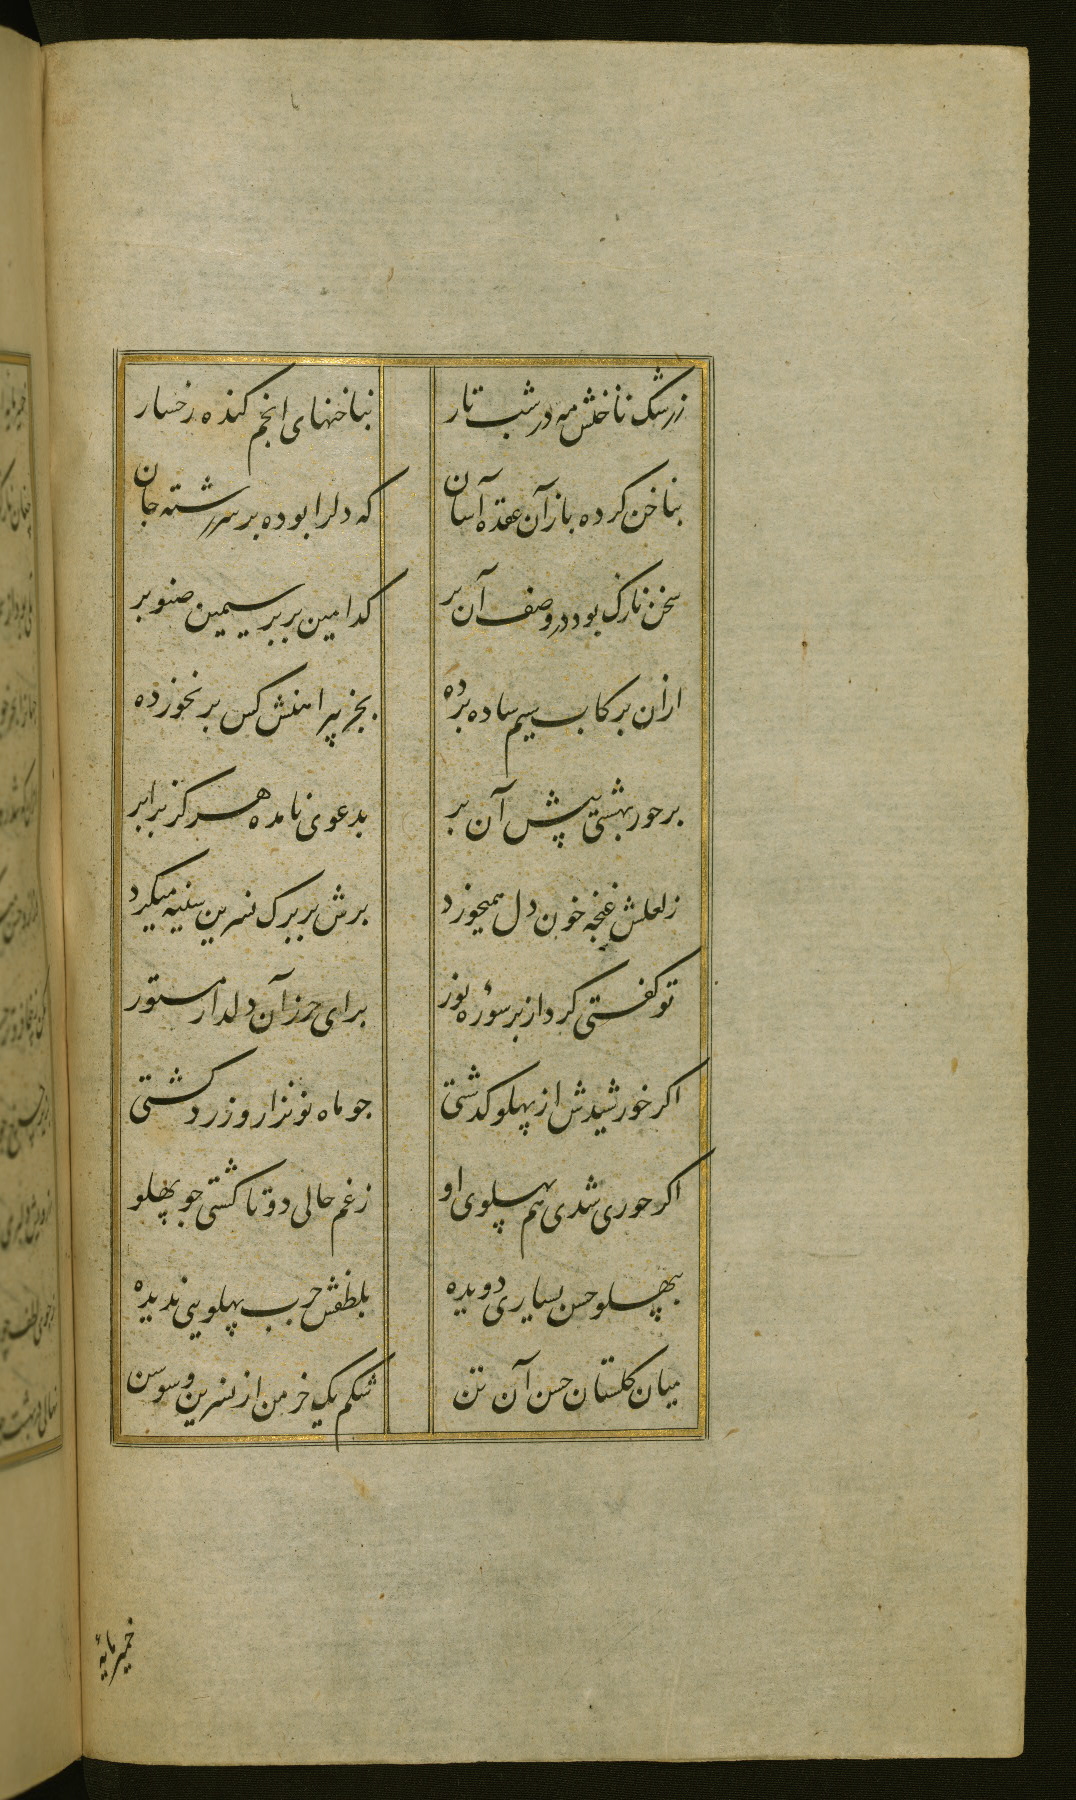 زرشک ناخنش مه در شب تار
بناخنهای انجم کنده رخسار
بناخن کرده باز آن عقده آسان
که دلرا بوده بر سر رشته جان
سخن نازک بود در وصف آن بر
کدامین بر بر سیمین صنوبر
ازان بر کاب سیم ساده برده
بجز پیراهنش کس بر نخورده
بر حور بهشتی پیش آن بر
بدعوی نامده هرکز برابر
زلعلش غنچه خون دل همیخورد
برش بر برک نسرین سینه میکرد
تو کفتی کرد از بر سوره نور
برای حرز آن دلدار مستور
اکر خورشیدش از پهلو کذشتی
جو ماه نو نزار و زرد کشتی
اکر حوری شدی هم پهلوی او
زغم حالی دوتا کشتی جو پهلو
بپهلو حسن بسیاری دویده
بلطفش حرب پهلویی ندیده
میان کلستان حسن آن تن
شکم یک خرمن از نسرین و سوسن
خمیر مایهٔ